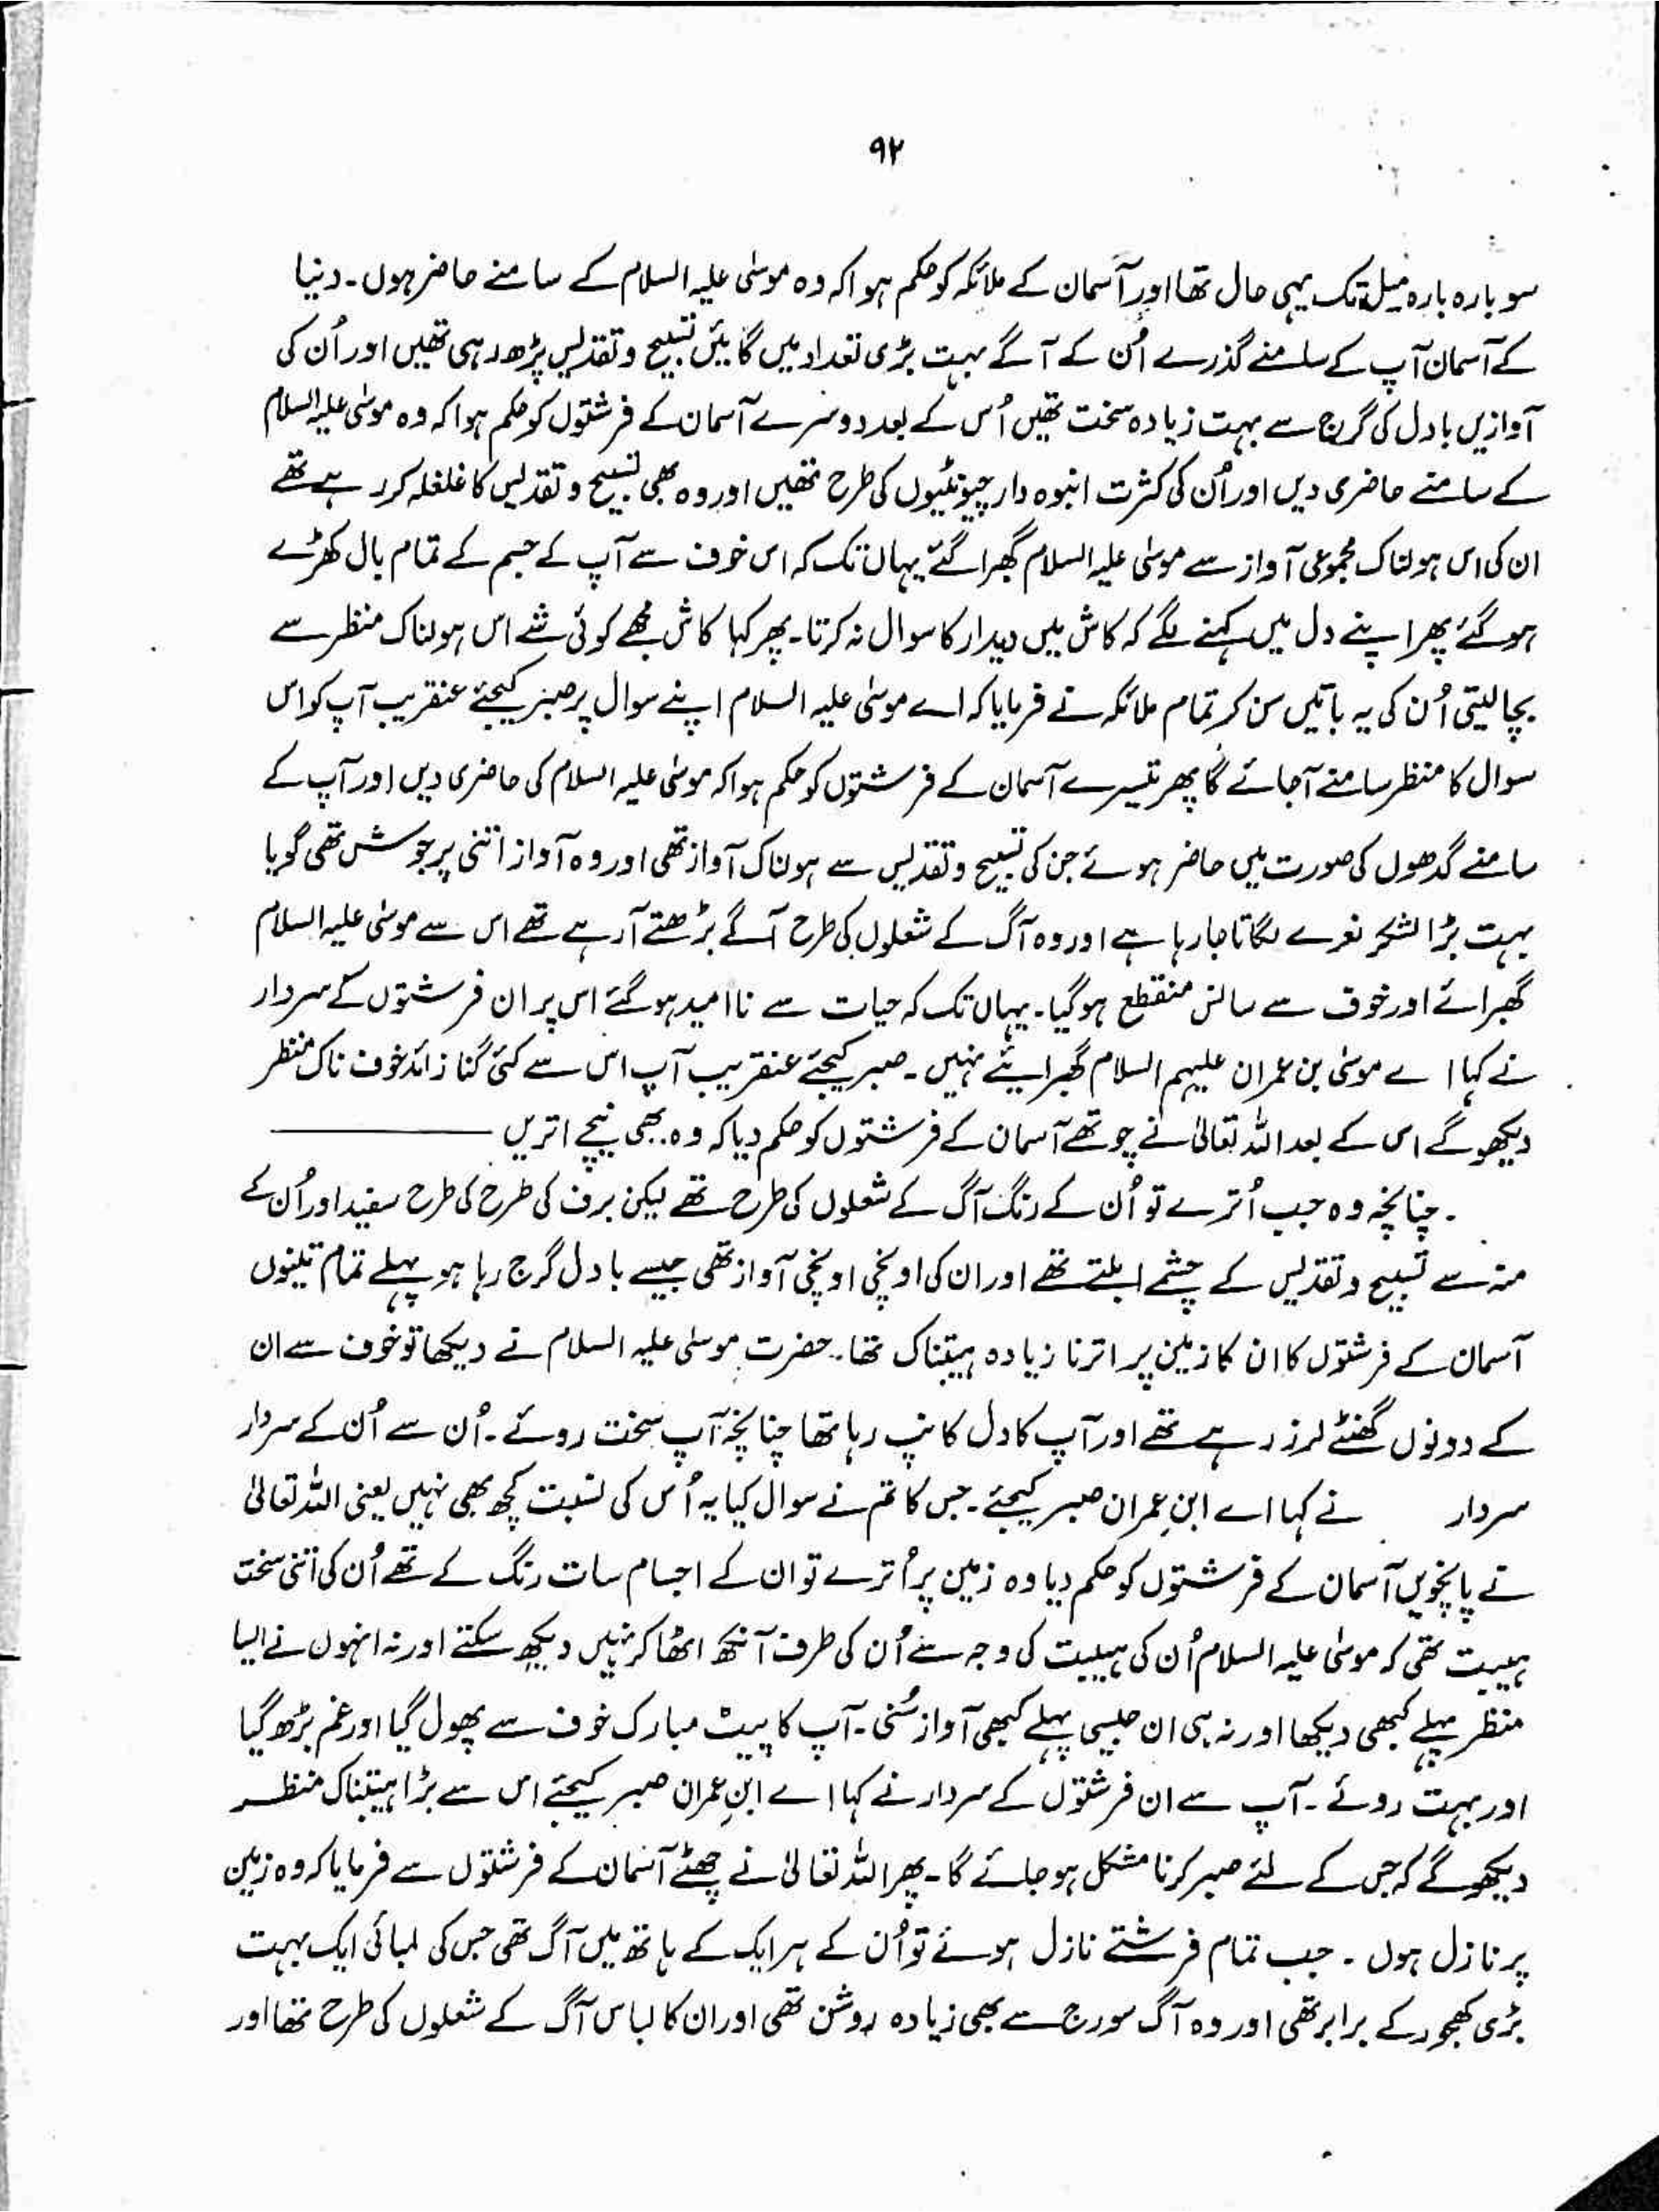 ۹۲
سو بارہ بارہ میل تک یہی حال تھا اور آسمان کے ملائکہ کو حکم ہوا کہ وہ موسٰی علیہ السلام کے سامنے حاضر ہوں۔ دنیا
کے آسمان آپ کے سامنے گذرے اُن کے آگے بہت بڑی تعداد میں گائیں تسبیح و تقدیس پڑھ رہی تھیں اور اُن کی
آوازیں بادل کی گرج سے بہت زیادہ سخت تھیں اُس کے بعد دوسرے آسمان کے فرشتوں کو حکم ہوا کہ وہ موسٰی علیہ السلام
کے سامنے حاضری دیں اور اُن کی کثرت انبوہ دار چیونٹیوں کی طرح تھیں اور وہ بھی تسبیح و تقدیس کا غلغلہ کر رہے تھے
ان کی اس ہولناک مجموعی آواز سے موسٰی علیہ السلام گھبرا گئے یہاں تک کہ اس خوف سے آپ کے جسم کے تمام بال کھڑے
ہو گئے پھر اپنے دل میں کہنے لگے کہ کاش میں دیدار کا سوال نہ کرتا۔ پھر کہا کاش مجھے کوئی شے اس ہولناک منظر سے
بچا لیتی اُن کی یہ باتیں سن کر تمام ملائکہ نے فرمایا کہ اے موسٰی علیہ السلام اپنے سوال پر صبر کیجئے عنقریب آپ کو اس
سوال کا منظر سامنے آجائے گا پھر تیسرے آسمان کے فرشتوں کو حکم ہوا کہ موسٰی علیہ السلام کی حاضری دیں اور آپ کے
سامنے گدھوں کی صورت میں حاضر ہوئے جن کی تسبیح و تقدیس سے ہولناک آواز تھی اور وہ آواز اتنی پرجوش تھی گویا
بہت بڑا لشکر نعرے لگاتا جا رہا ہے اور وہ آگ کے شعلوں کی طرح آگے بڑھتے آرہے تھے اس سے موسٰی علیہ السلام
گھبرائے اور خوف سے سانس منقطع ہو گیا۔ یہاں تک کہ حیات سے ناامید ہو گئے اس پر ان فرشتوں کے سردار
نے کہا اے موسٰی بن عمران علیہم السلام گھبرایئے نہیں۔ صبر کیجئے عنقریب آپ اس سے کئی گنا زائد خوف ناک منظر
دیکھو گے اس کے بعد اللہ تعالٰی نے چوتھے آسمان کے فرشتوں کو حکم دیا کہ وہ بھی نیچے اتریں
چنانچہ وہ جب اُترے تو اُن کے رنگ آگ کے شعلوں کی طرح تھے لیکن برف کی طرح کی طرح سفید اور اُن کے
منہ سے تسبیح و تقدیس کے چشمے ابلتے تھے اور ان کی اونچی اونچی آواز تھی جیسے بادل گرج رہا ہو پہلے تمام تینوں
آسمان کے فرشتوں کا ان کا زمین پر اترنا زیادہ ہیبتناک تھا۔ حضرت موسٰی علیہ السلام نے دیکھا تو خوف سے ان
کے دونوں گھنٹے لرز رہے تھے اور آپ کا دل کانپ رہا تھا چنانچہ آپ سخت روئے۔ اُن سے اُن کے سردار
سردار نے کہا اے ابنِ عمران صبر کیجئے۔ جس کا تم نے سوال کیا یہ اُس کی نسبت کچھ بھی نہیں یعنی اللہ تعالٰی
نے پانچویں آسمان کے فرشتوں کو حکم دیا وہ زمین پر اُترے تو ان کے اجسام سات رنگ کے تھے اُن کی اتنی سخت
ہیبت تھی کہ موسٰی علیہ السلام اُن کی ہیبت کی وجہ سے اُن کی طرف آنکھ اٹھا کر نہیں دیکھ سکتے اور نہ انہوں نے ایسا
منظر پہلے کبھی دیکھا اور نہ ہی ان جیسی پہلے کبھی آواز سُنی۔ آپ کا پیٹ مبارک خوف سے پھول گیا اور غم بڑھ گیا
اور بہت روئے۔ آپ سے ان فرشتوں کے سردار نے کہا اے ابنِ عمران صبر کیجئے اس سے بڑا ہیبتناک منظر
دیکھو گے کہ جس کے لئے صبر کرنا مشکل ہو جائے گا۔ پھر اللہ تعالٰی نے چھٹے آسمان کے فرشتوں سے فرمایا کہ وہ زمین
پر نازل ہوں۔ جب تمام فرشتے نازل ہوئے تو اُن کے ہر ایک کے ہاتھ میں آگ تھی جس کی لمبائی ایک بہت
بڑی کھجور کے برابر تھی اور وہ آگ سورج سے بھی زیادہ روشن تھی اور ان کا لباس آگ کے شعلوں کی طرح تھا اور